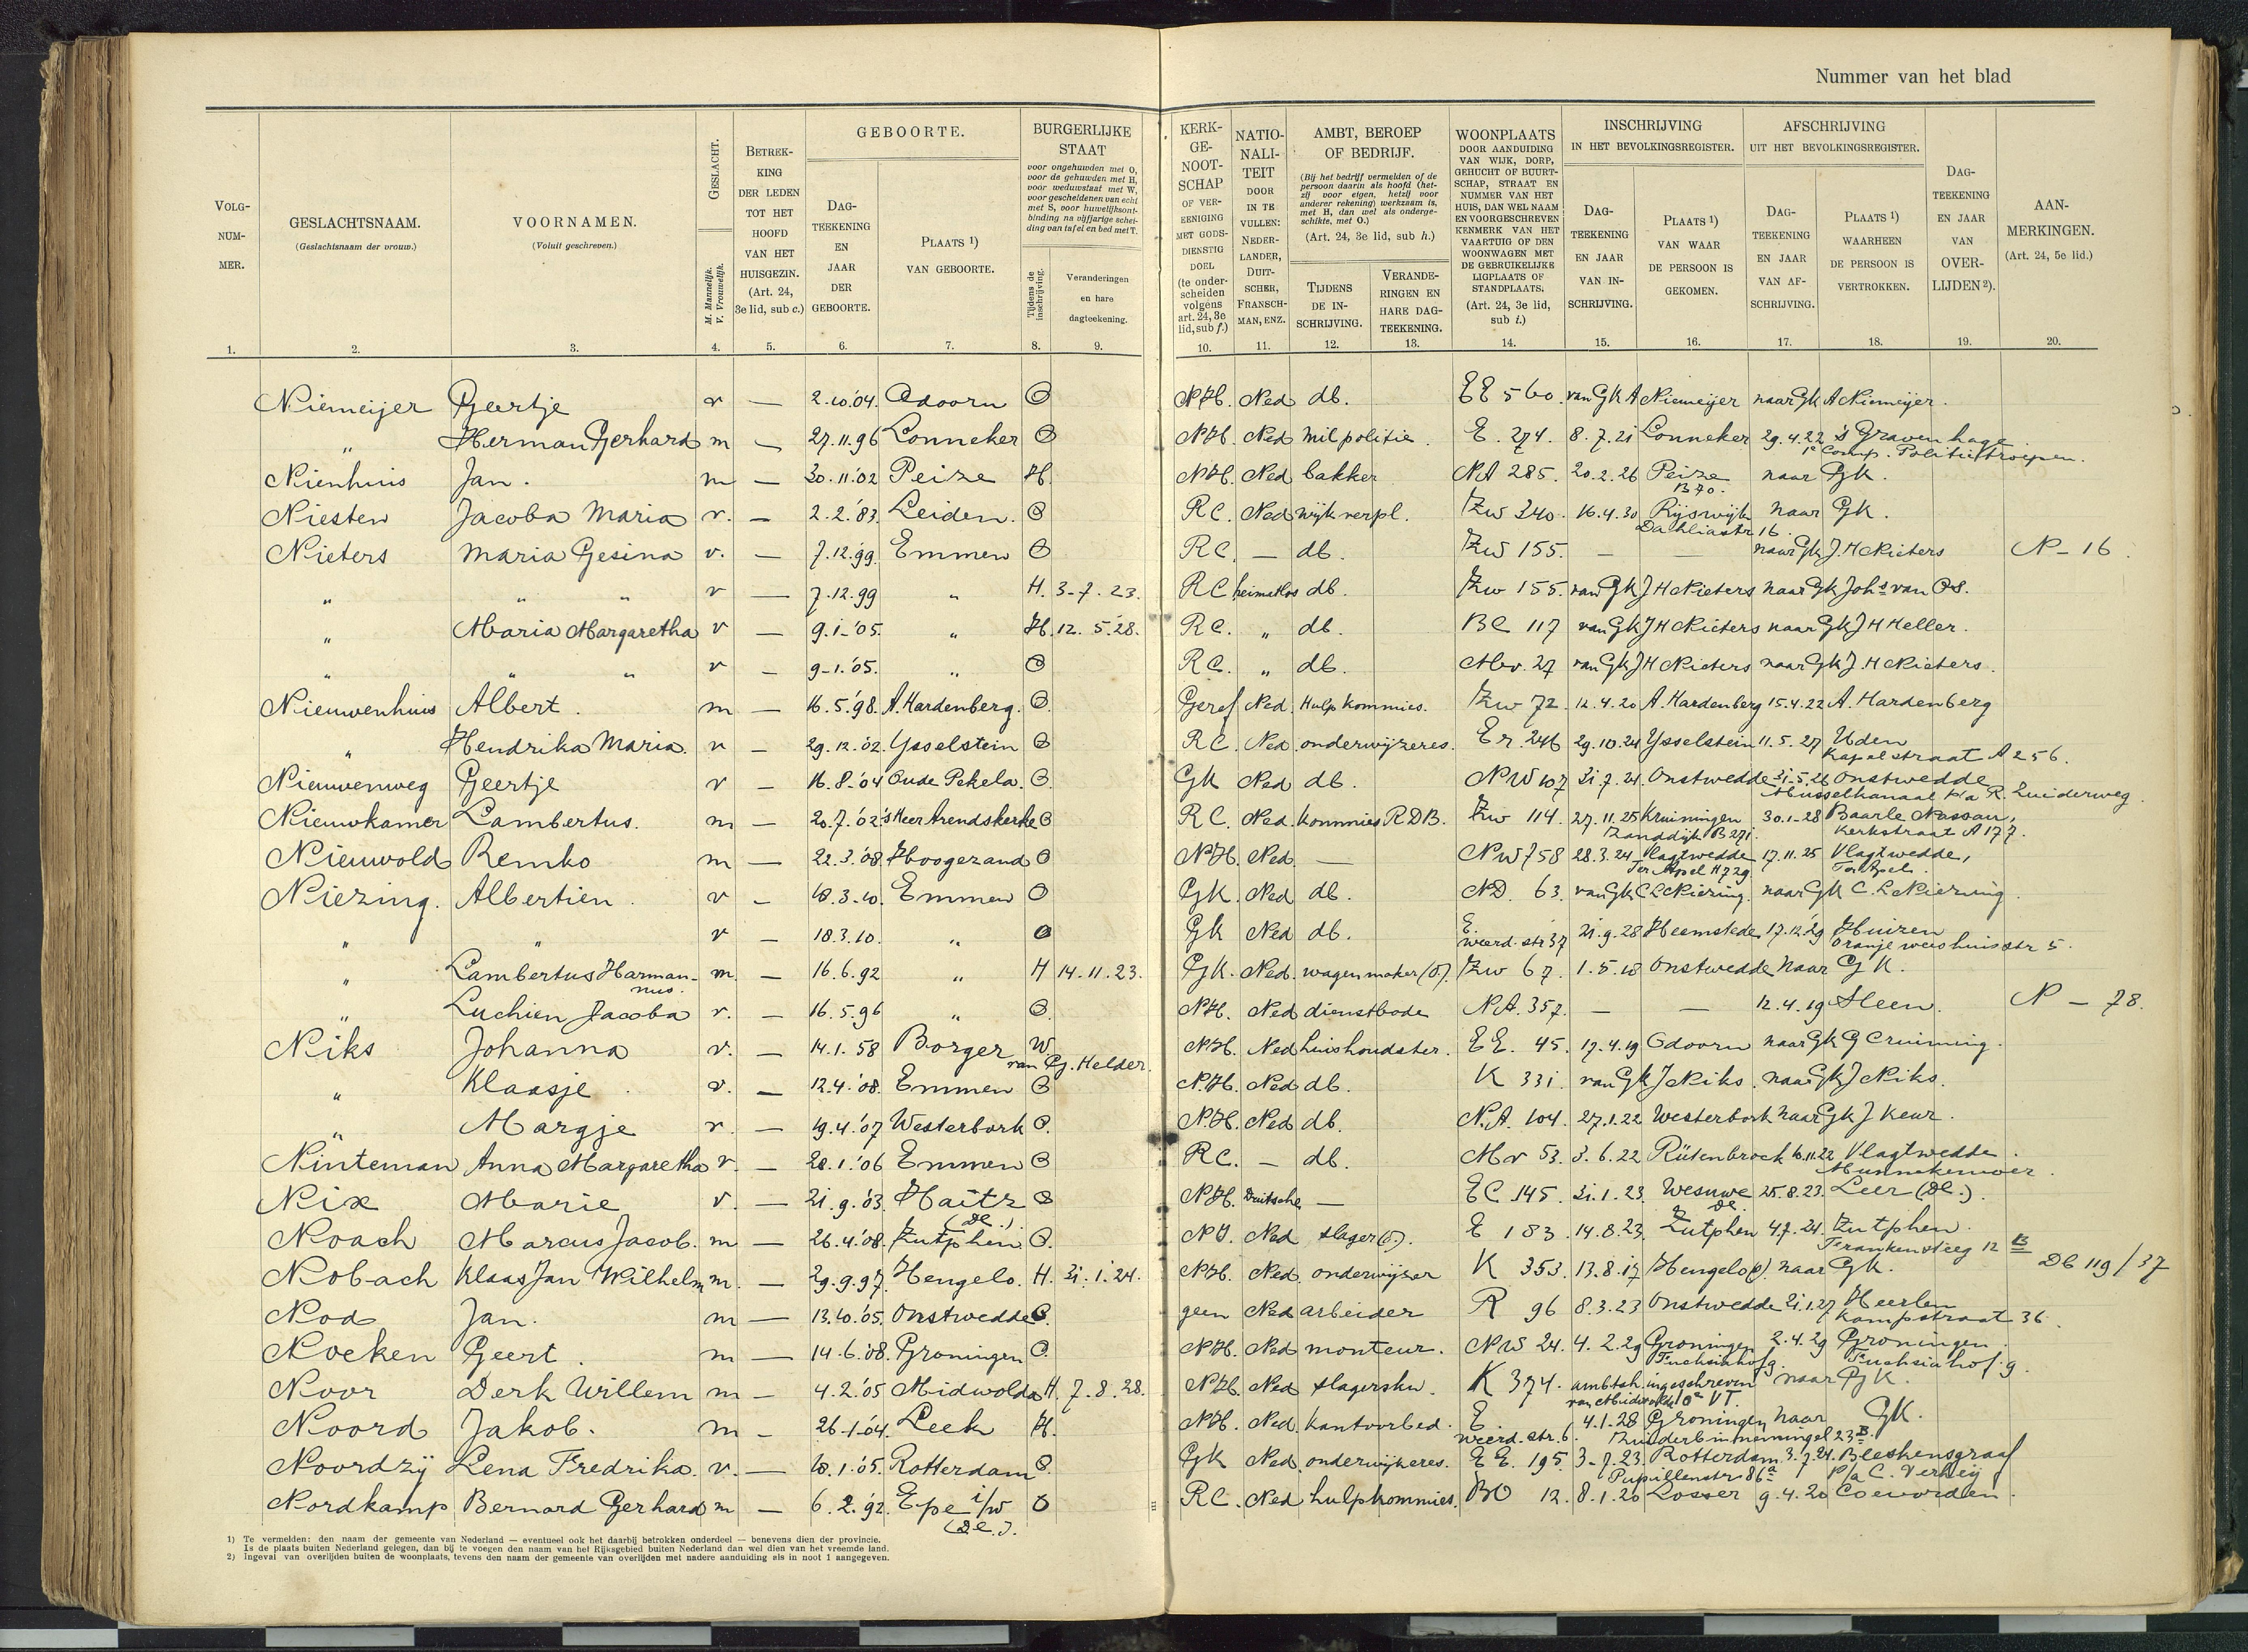 Nummer van het blad
VOLG-NUM-MER. GESLACHTSNAAM. (Geslachtsnaam der vrouw.) VOORNAMEN. (Voluit geschreven.) GESLACHT. M. Mannelijk. V. Vrouwelijk. BETREK-KING DER LEDEN TOT HET HOOFD VAN HET HUISGEZIN. (Art. 24, 3e lid, sub c.) GEBOORTE. DAG-TEEKENING EN JAAR DER GEBOORTE. PLAATS 1) VAN GEBOORTE. BURGERLIJKE STAAT voor ongehuwden met O, voor de gehuwden met H, voor weduwstaat met W, voor gescheidenen van echt met S, voor huwelijksont-binding na vijfjarige schei-ding van tafel en bed met T. Tijdens de inschrijving. Veranderingen en hare dagteekening.
KERK-GE-NOOT-SCHAP OF VER-EENIGING MET GODS-DIENSTIG DOEL (te onder-scheiden volgens art. 24, 3e lid, sub f.) NATIO-NALI-TEIT DOOR IN TE VULLEN: NEDER-LANDER, DUIT-SCHER, FRANSCH-MAN, ENZ. AMBT, BEROEP OF BEDRIJF. (Bij het bedrijf vermelden of de persoon daarin als hoofd (het-zij voor eigen, hetzij voor anderer rekening) werkzaam is, met H, dan wel als onderge-schikte, met O.) (Art. 24, 3e lid, sub h.) TIJDENS DE IN-SCHRIJVING. VERANDE-RINGEN EN HARE DAG-TEEKENING. WOONPLAATS DOOR AANDUIDING VAN WIJK, DORP, GEHUCHT OF BUURT-SCHAP, STRAAT EN NUMMER VAN HET HUIS, DAN WEL NAAM EN VOORGESCHREVEN KENMERK VAN HET VAARTUIG OF DEN WOONWAGEN MET DE GEBRUIKELIJKE LIGPLAATS OF STANDPLAATS. (Art. 24, 3e lid, sub i.) INSCHRIJVING IN HET BEVOLKINGSREGISTER. DAG-TEEKENING EN JAAR VAN IN-SCHRIJVING. PLAATS 1) VAN WAAR DE PERSOON IS GEKOMEN. AFSCHRIJVING UIT HET BEVOLKINGSREGISTER. DAG-TEEKENING EN JAAR VAN AF-SCHRIJVING. PLAATS 1) WAARHEEN DE PERSOON IS VERTROKKEN. DAG-TEEKENING EN JAAR VAN OVER-LIJDEN 2). AAN-MERKINGEN. (Art. 24, 5e lid.)
1. 2. 3. 4. 5. 6. 7. 8. 9. 10. 11. 12. 13. 14. 15. 16. 17. 18. 19. 20.
Niemeijer Geertje v — 2.10.'04. Odoorn O NH. Ned db. EE 560. van GK A Niemeijer naar GK A Niemeijer.
" Herman Gerhard m — 27.11.96 Lonneker O NH. Ned mil politie. E. 274. 8.7.21 Lonneker 29.4.22 's Gravenhage. 1e Comp. Politietroepen.
Nienhuis Jan. m — 30.11.'02 Peize H. NH. Ned bakker NA 285. 20.2.26 Peize B 70. naar GK.
Niesten Jacoba Maria v. — 2.2.'83. Leiden. O RC. Ned wijkverpl. Zw 340. 16.4.30 Rijswijk Dahliastr 16. naar GK.
Nieters Maria Gesina v. — 7.12.'99. Emmen O RC. — db. Zw 155. — — naar GK J. H Nieters N - 16.
" " " v — 7.12.99 " H. 3-7.23. RC heimatlos db. Zw 155. van GK J H Nieters naar GK Johs van Os.
" Maria Margaretha v — 9.1-'05. " H. 12.5.'28. RC. " db. BC 117 van GK J H Nieters naar GK J H Heller.
" " " v — 9-1.'05. " O RC. " db. Mv. 27 van GK J H Nieters naar GK J. H Nieters.
Nieuwenhuis Albert. m — 16.5.'98. A. Hardenberg. O Geref Ned. Hulpkommies. Zw 72. 12.4.20 A. Hardenberg 15.4.22 A. Hardenberg
" Hendrika Maria. v — 29.12.'02. Ysselstein O RC. Ned onderwijzeres. Er. 246 29.10.24 Ysselstein 11.5.27 Uden Kapelstraat A 256.
Nieuwenweg Geertje v — 16.8-'04 Oude Pekela. O. GK Ned db. NW 107 31.7.24. Onstwedde 31-5.26 Onstwedde Musselkanaal p/a R. Zuiderweg.
Nieuwkamer Lambertus. m — 20.7.'02 's Heer Arendskerke O RC. Ned. kommies RDB. Zw 114. 27.11.25 Kruiningen Zanddijk B 271. 30.1-28 Baarle Nassau, Kerkstraat A 177.
Nieuwold Remko m — 22.3.'08. Hoogezand O NH. Ned. — NW 758 28.3.24 Vlagtwedde Ter Apel H 729. 17.11.25 Vlagtwedde, Ter Apel.
Niezing. Albertien. v — 18.3-10. Emmen O GK. Ned db. ND. 63. van GK C L Niezing. naar GK C. L Niezing.
" " v — 18.3.10. " O GK Ned db. E. weerd. str 37 21.9.28 Heemstede 17.12.'29 Huizen Oranjeweeshuisstr 5.
" Lambertus Harman-nus. m. — 16.6.92 " H 14-11.23. GK. Ned. wagenmaker (O). Zw 67. 1.5.18 Onstwedde naar GK.
" Luchien Jacoba v. — 16.5.96 " O. NH. Ned dienstbode N.A. 357. — — 12.4.19 Sleen. N - 78.
Niks Johanna v. — 14.1.58 Borger W. van G. Helder. NH. Ned huishoudster. EE. 45. 17.4.19 Odoorn naar GK G Cruiming.
" Klaasje v. — 12.4.'08. Emmen O N.H. Ned db. K 331. van GK J Niks. naar GK J Niks.
" Margje v. — 19.4.'07 Westerbork O. N.H. Ned db. N.A. 104. 27.1.22 Westerbork naar GK J Keur.
Ninteman Anna Margaretha v. — 28.1.'06 Emmen O RC. — db. Mv 53. 3.6.22 Rütenbrock 16.11.22 Vlagtwedde Munnekemoer.
Nix Marie v. — 21.9.'03. Haitz (De.) O NH. Duitsche — EC 145. 31.1.23. Wesuwe De. 25.8.23. Leer (De.).
Noach Marcus Jacob. m — 26.4.'08. Zutphen O. NI. Ned slager (O). E 183. 14.8.23. Zutphen 4.7.24. Zutphen. Frankensteeg 12 B
Nobach Klaas Jan Wilhelm m. — 29.9.97. Hengelo. H. 31.1.24. NH. Ned. onderwijzer K 353. 13.8.17 Hengelo naar GK. Db 119/37
Nod Jan. m — 13.10.'05. Onstwedde O. geen Ned arbeider R 96 8.3.23 Onstwedde 21.1.27 Heerlen Kampstraat 36.
Noeken Geert. m — 14.6.'08. Groningen O NH. Ned monteur. NW 24. 4.2.29 Groningen Fuchsiahof 9. 2.4.29 Groningen. Fuchsiahof. 9.
Noor Derk Willem m — 4.2.'05 Midwolda H. 7.8.28. NH. Ned slagerskn. K 374. ambtsh. ingeschreven van Midwolda 10e VT. naar GK.
Noord Jakob. m — 26-1-'04. Leek H. NH. Ned. kantoorbed. E. weerd. str. 6. 4.1-28 Groningen Zuiderbinnensingel 23 B. naar GK.
Noordzij Lena Fredrika. v. — 10.1.'05. Rotterdam O GK Ned. onderwijzeres. EE. 195. 3-7.23. Rotterdam Pupillenstr 86a 3.7.24. Bleskensgraaf P/a C. Verheij
Nordkamp Bernard Gerhard m — 6.2.'92. Epe i/w (De.). O RC. Ned hulpkommies. BO 12. 8.1.20 Losser 9.4.20 Coevorden.
1) Te vermelden: den naam der gemeente van Nederland — eventueel ook het daarbij betrokken onderdeel — benevens dien der provincie.
Is de plaats buiten Nederland gelegen, dan bij te voegen den naam van het Rijksgebied buiten Nederland dan wel dien van het vreemde land.
2) Ingeval van overlijden buiten de woonplaats, tevens den naam der gemeente van overlijden met nadere aanduiding als in noot 1 aangegeven.